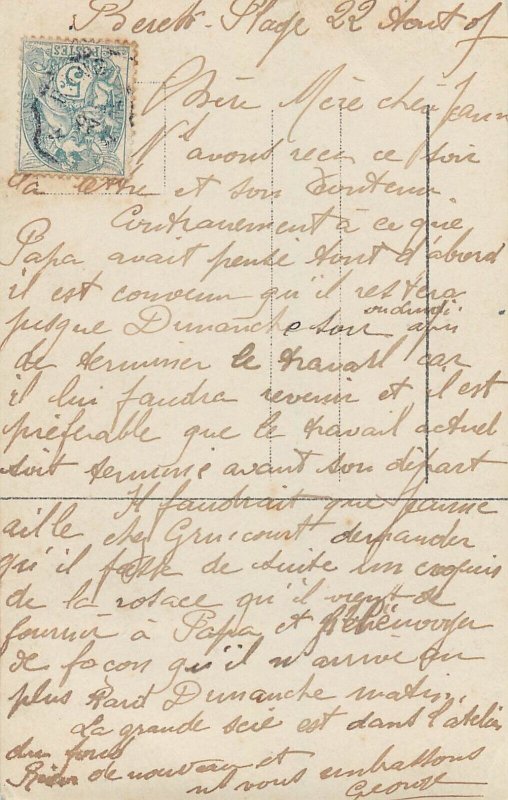 Plage 22 Aout 05
Chère Mère cher Jeanne
Ns avons reçu ce soir
ta lettre et son contenu
Contrairement à ce que
Papa avait pensé tout d'abord
il est convenu qu'il restera
jusque Dimanche soir ou lundi afin
de terminer le travail car
il lui faudra revenir et il est
préférable que le travail actuel
soit terminé avant son départ
Il faudrait que Jeanne
aille chez demander
qu'il fasse de suite un croquis
de la rosace qu'il vient de
fournir à Papa et
de façon qu'il n'arrive au
plus tard Dimanche matin.
La grande scie est dans l'atelier
du fond
Rien de nouveau et
ns vous embrassons
George
POSTES
5